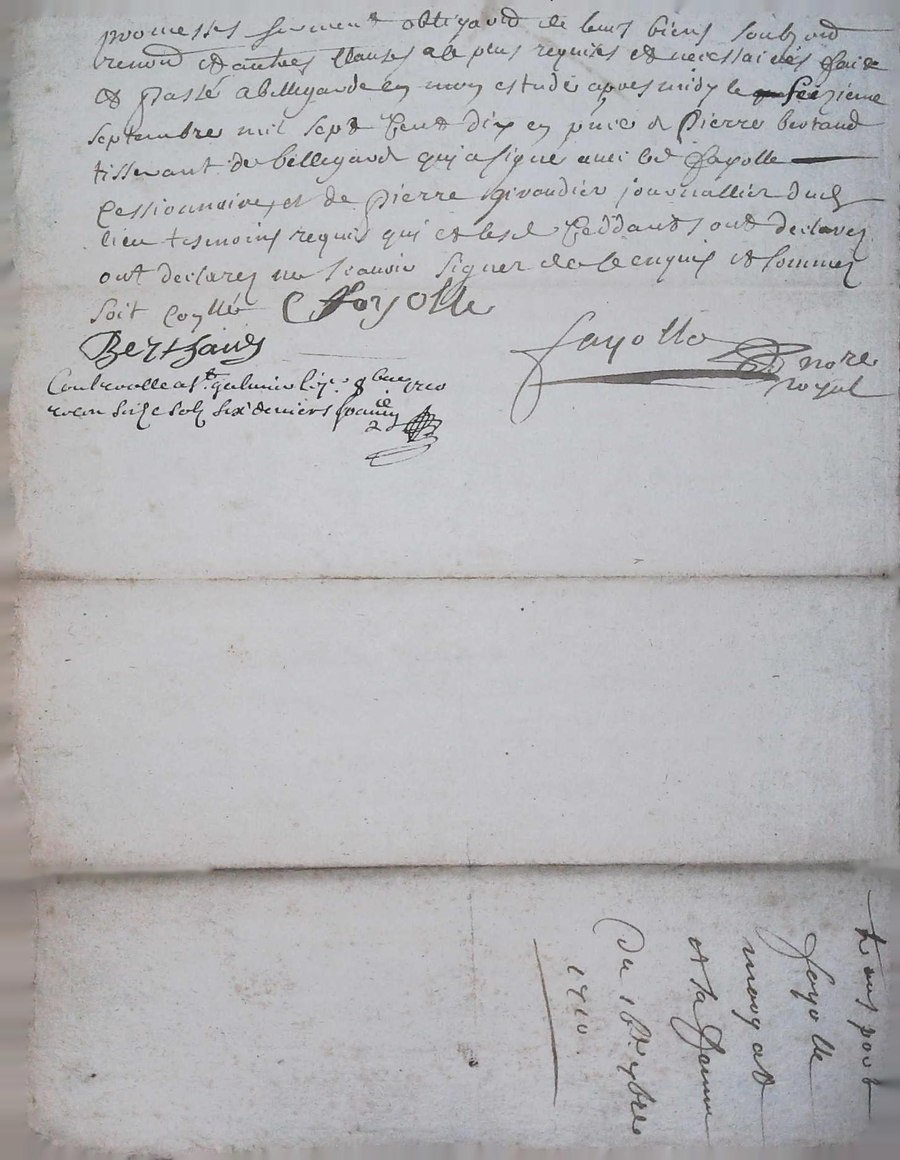 promesses serment obligaōn de leurs biens soubz ōns
renonō et autres clauses a ce plus requises et necessaires faict
et passé a bellegarde en mon estude apres midy le seizieme
septembre mil sept cent dix en pñce de Pierre bertaud
tisserant de bellegarde qui a signe avec led fayolle
Cessionnaire, et de Pierre giraudier journallier dud
lieu tesmoins requis qui et lesd Ceddants ont declarez
ont declarez ne scavoir signer de ce enquis et sommez
soit coņllé CFayolle
Berthaud
fayolle
nore
royal
Controolle a st galmier le 8bre 1710
recu six sols six deniers
transport
fayolle
et sa femme
Du 16e 7bre
1710